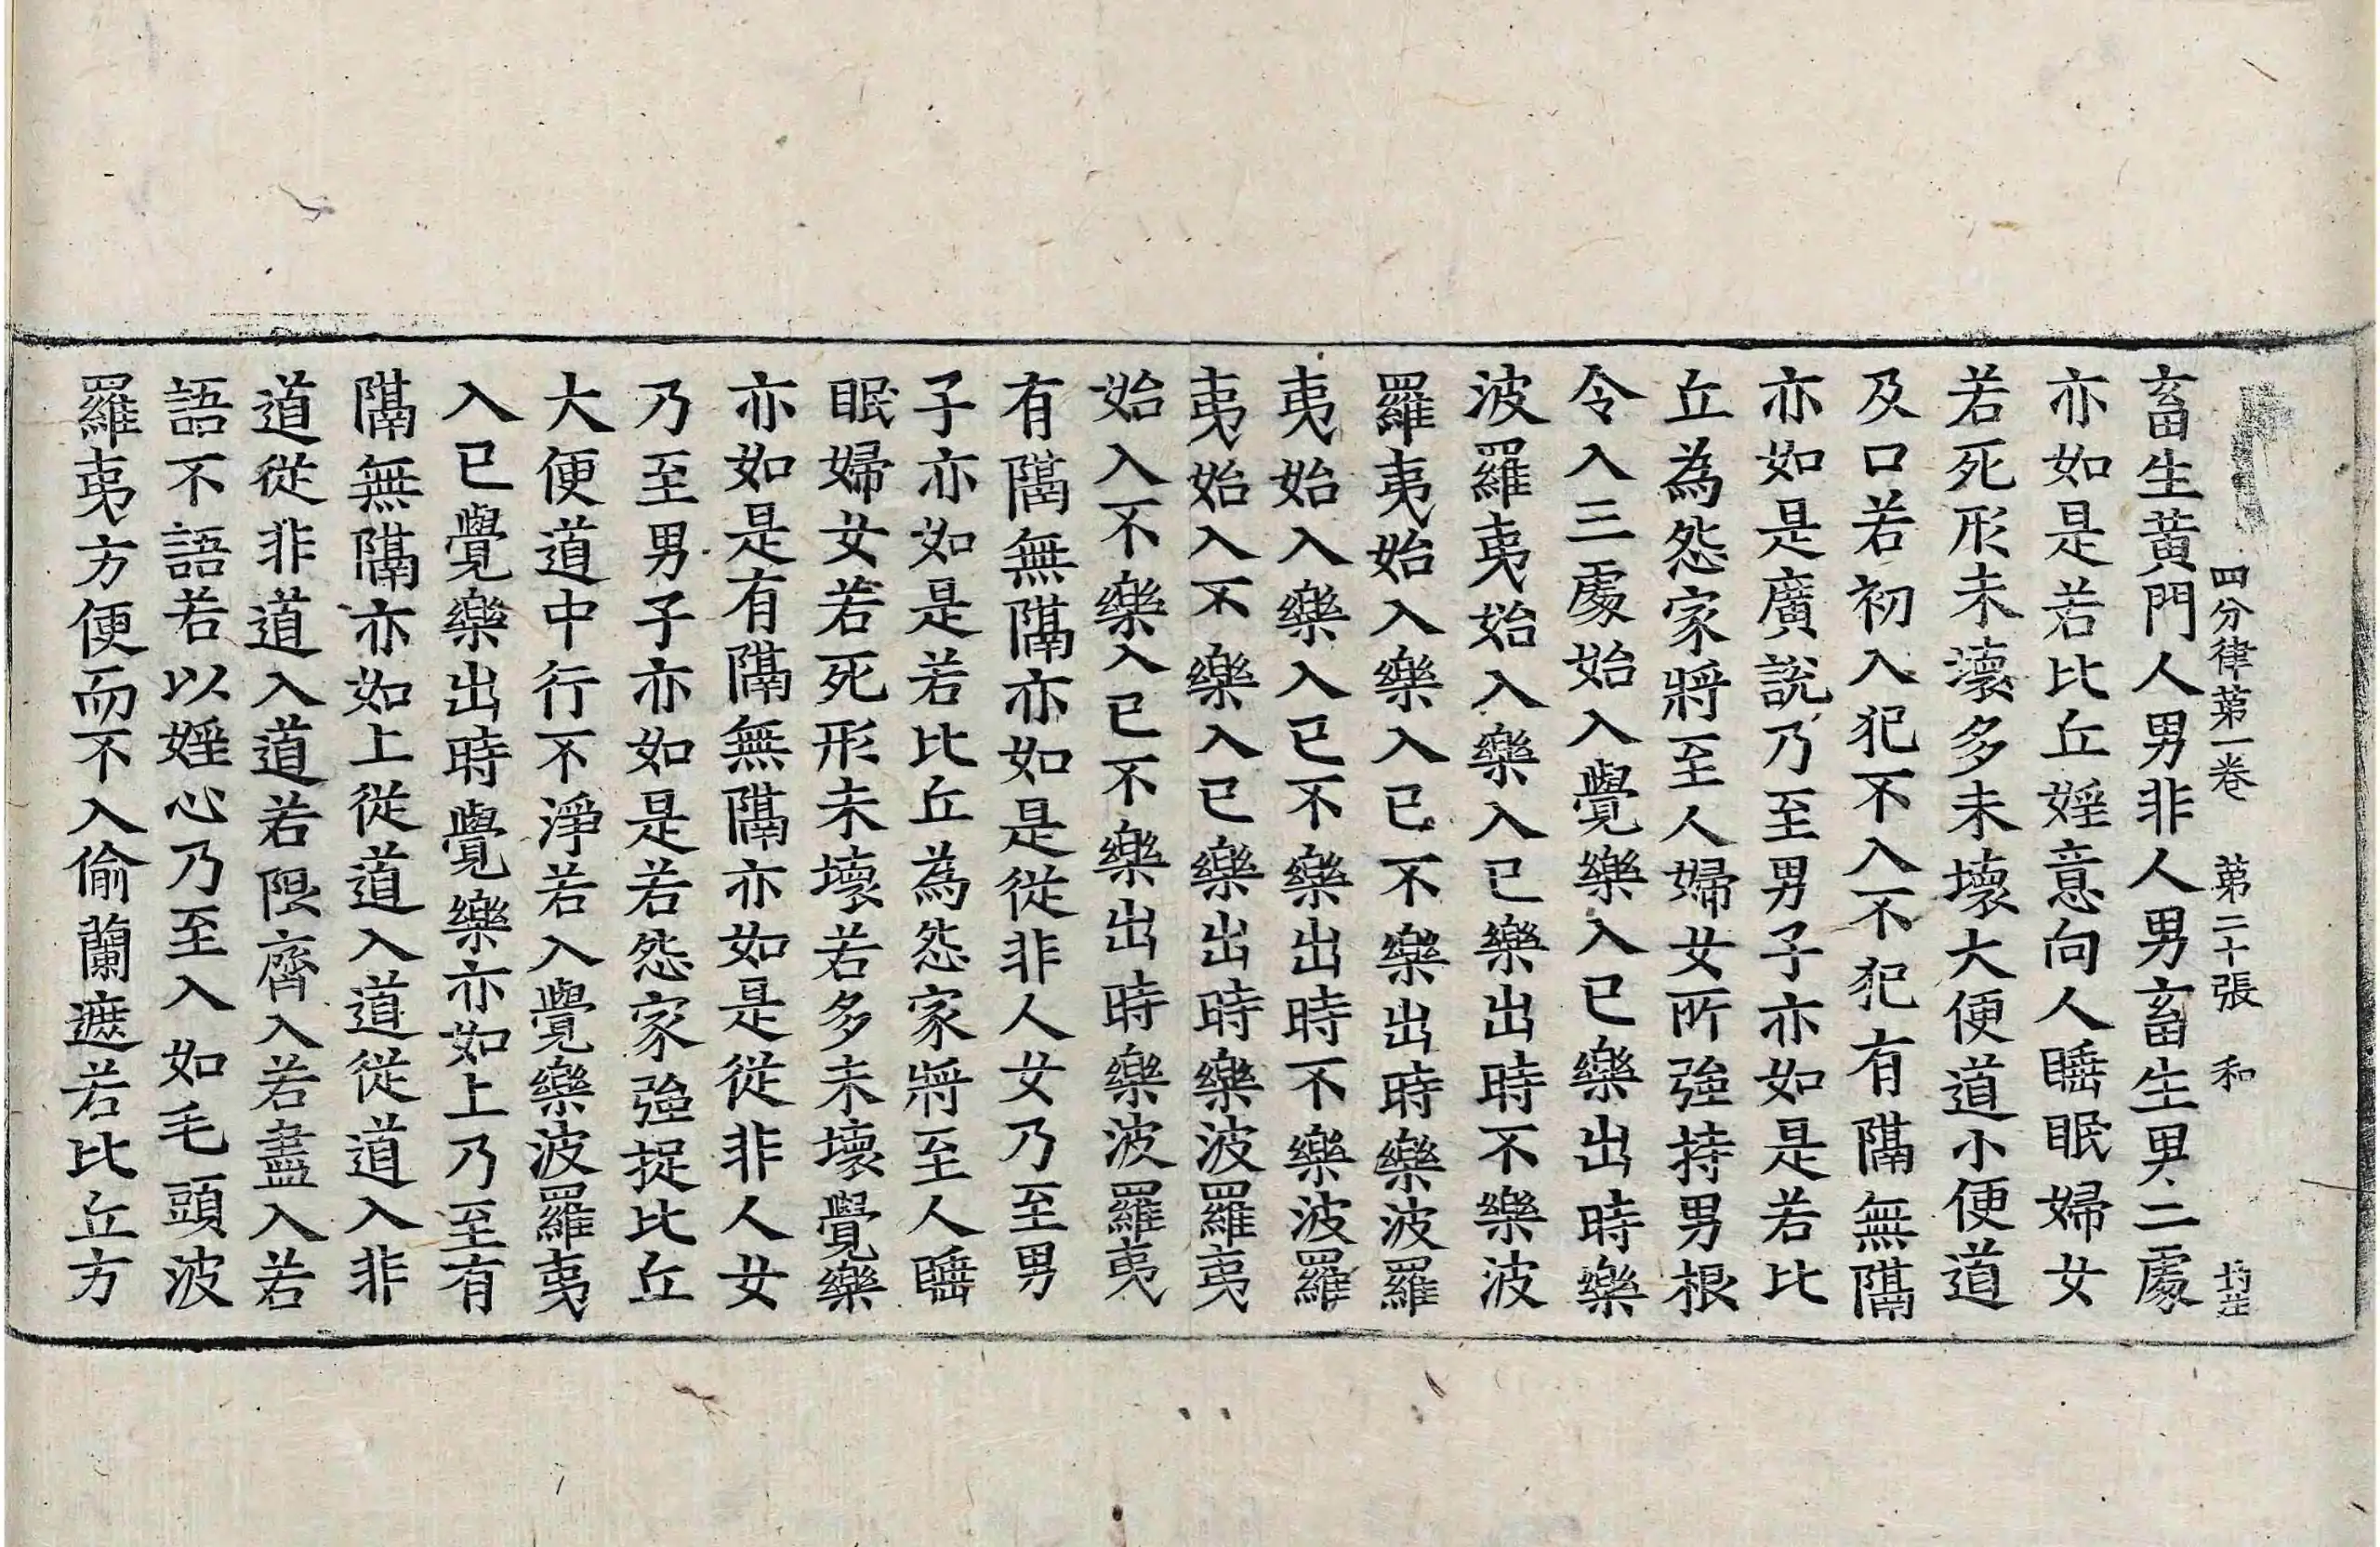 四分律苐一卷 苐二十張 和
畜生黃門人男非人男畜生男二處
亦如是若比丘婬意向人睡眠婦女
若死形未壞多未壞大便道小便道
及口若初入犯不入不犯有隔無隔
亦如是廣說乃至男子亦如是若比
丘為怨家將至人婦女所強持男根
令入三處始入覺樂入已樂出時樂
波羅夷始入樂入已樂出時不樂波
羅夷始入樂入已不樂出時樂波羅
夷始入樂入已不樂出時不樂波羅
夷始入不樂入已樂出時樂波羅夷
始入不樂入已不樂出時樂波羅夷
有隔無隔亦如是從非人女乃至男
子亦如是若比丘為怨家將至人睡
眠婦女若死形未壞若多未壞覺樂
亦如是有隔無隔亦如是從非人女
乃至男子亦如是若怨家強捉比丘
大便道中行不淨若入覺樂波羅夷
入已覺樂出時覺樂亦如上乃至有
隔無隔亦如上從道入道從道入非
道從非道入道若限齊入若盡入若
語不語若以婬心乃至入如毛頭波
羅夷方便而不入偷蘭遮若比丘方